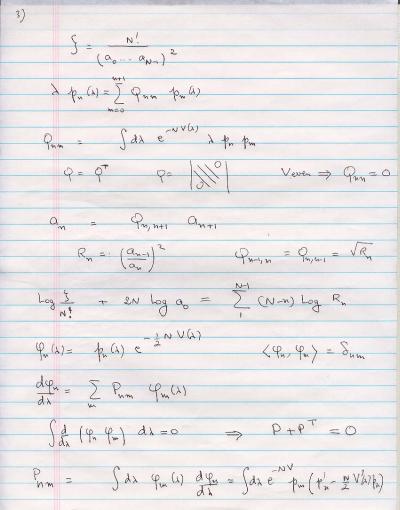 3)
ζ = N! / (a₀ ... a_{N-1})²
λ p_n(λ) = Σ_{m=0}^{n+1} Q_{nm} p_m(λ)
Q_{nm} = ∫dλ e^{-NV(λ)} λ p_n p_m
Q = Q^T Q = | 0 0 | V even ⇒ Q_{nn} = 0
a_n = Q_{n,n+1} a_{n+1}
R_n = (a_{n-1}/a_n)² Q_{n-1,n} = Q_{n,n-1} = √R_n
Log ζ/N! + 2N log a₀ = Σ_1^{N-1} (N-n) Log R_n
φ_n(λ) = p_n(λ) e^{-½NV(λ)} ⟨φ_n, φ_n⟩ = δ_{nm}
dφ_n/dλ = Σ_m P_{nm} φ_m(λ)
∫ d/dλ (φ_n φ_m) dλ = 0 ⇒ P + P^T = 0
P_{nm} = ∫dλ φ_m(λ) dφ_n/dλ = ∫dλ e^{-NV} p_m (p'_n - N/2 V'(λ) p_n)